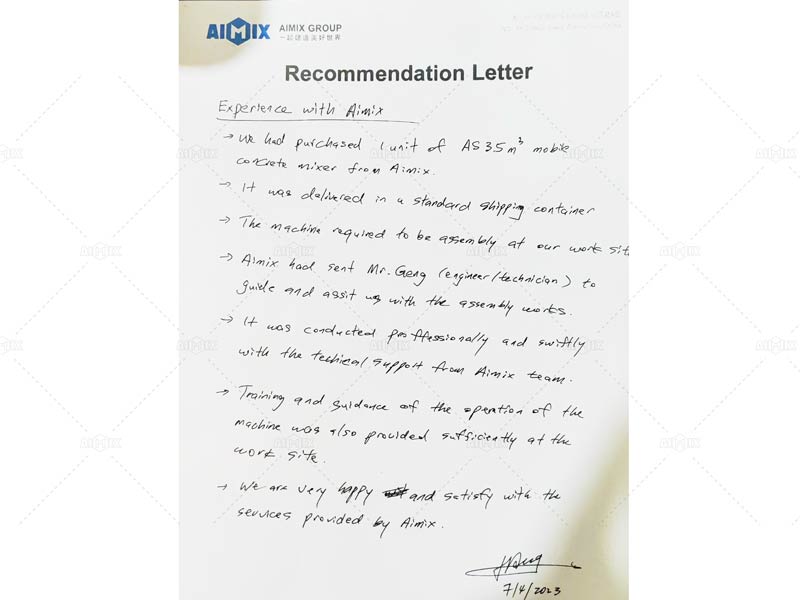 AIMIX
AIMIX GROUP
一起建造美好世界
Recommendation Letter
Experience with Aimix
→ We had purchased 1 unit of AS 3.5 m³ mobile
concrete mixer from Aimix.
→ It was delivered in a standard shipping container
→ The machine required to be assembly at our work site
→ Aimix had sent Mr. Geng (engineer/technician) to
guide and assit us with the assembly works.
→ It was conducted proffessionally and swiftly
with the techical support from Aimix team.
→ Training and guidance of the operation of the
machine was also provided sufficiently at the
work site.
→ We are very happy and satisfy with the
services provided by Aimix.
7/4/2023